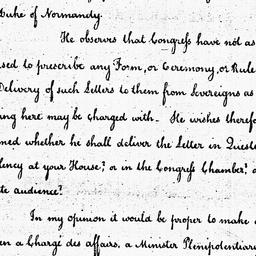 Duke of Normandy.
He observes that Congress have not as
sed to prescribe any Form, or Ceremony, or Rule
Delivery of such Letters to them from Sovereigns as
ing here may be Charged with. He wishes therefo
ned whether he shall deliver the Letter in Questi
lency at your House? or in the Congress Chamber? o
te audience?
In my opinion it would be proper to make a
en a Chargé des affairs, a Minister Plenipotentiary